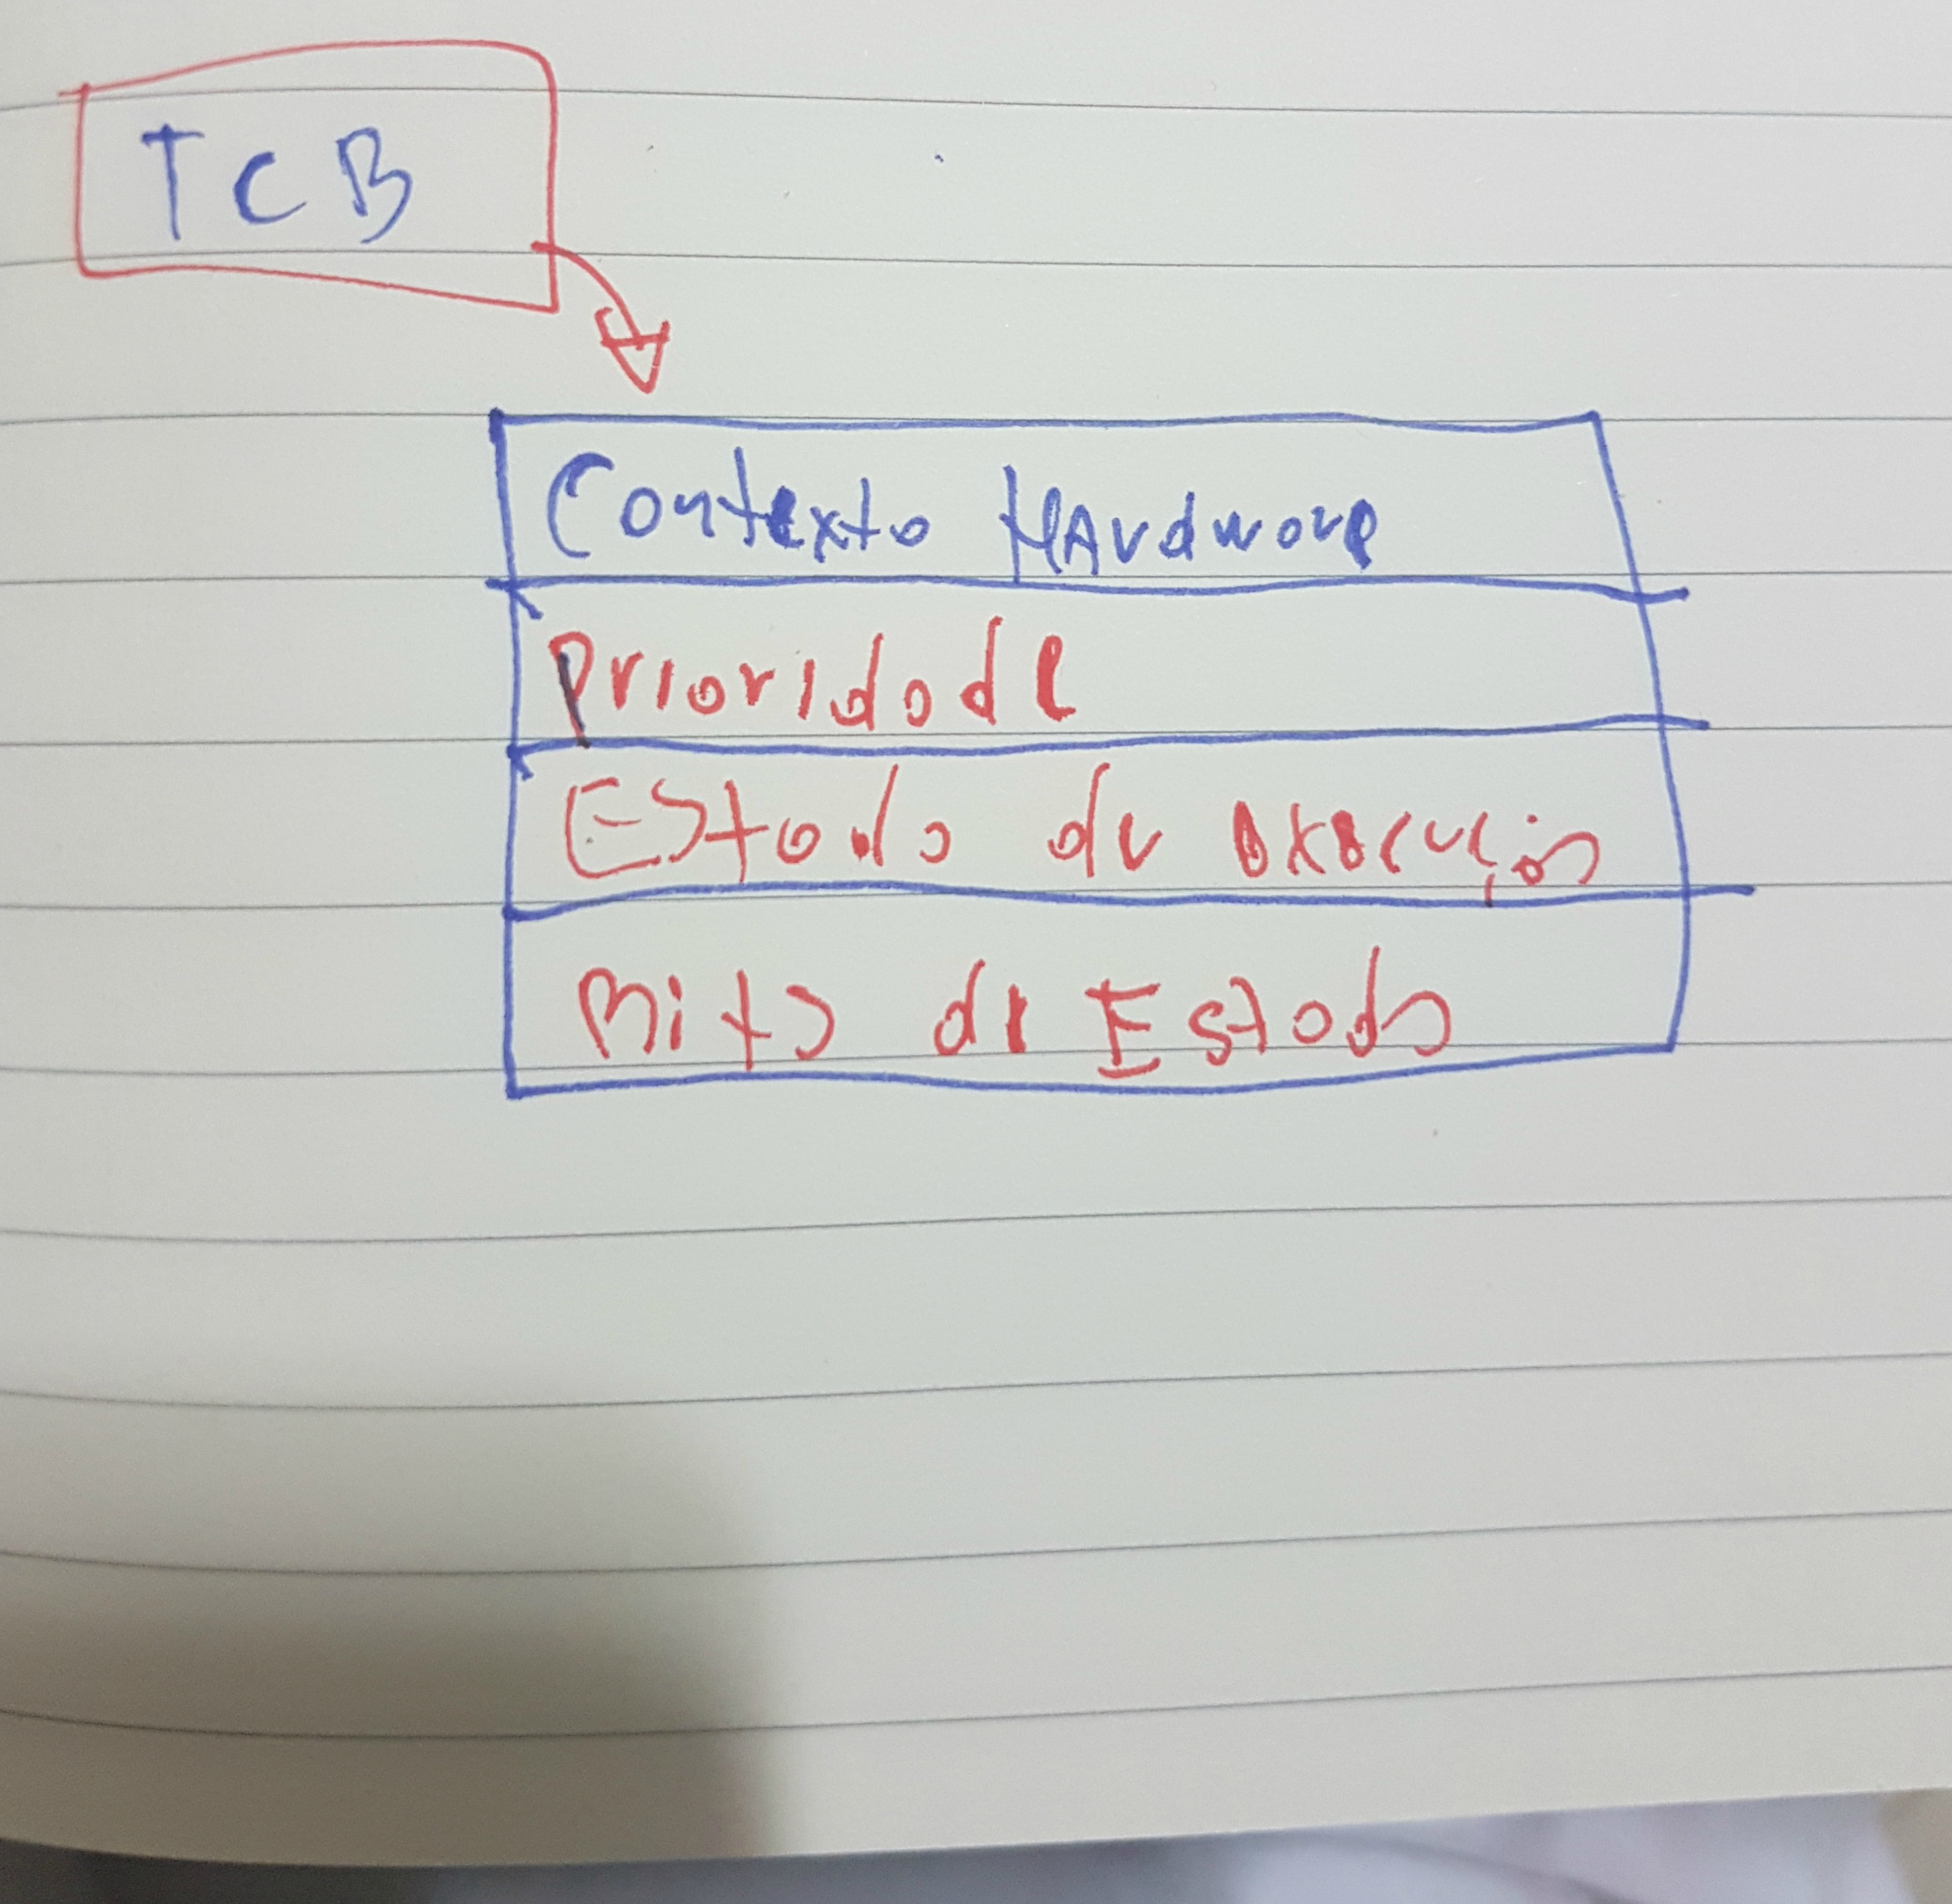 TCB
Contexto Hardware
Prioridade
Estado de execução
Bits de Estado